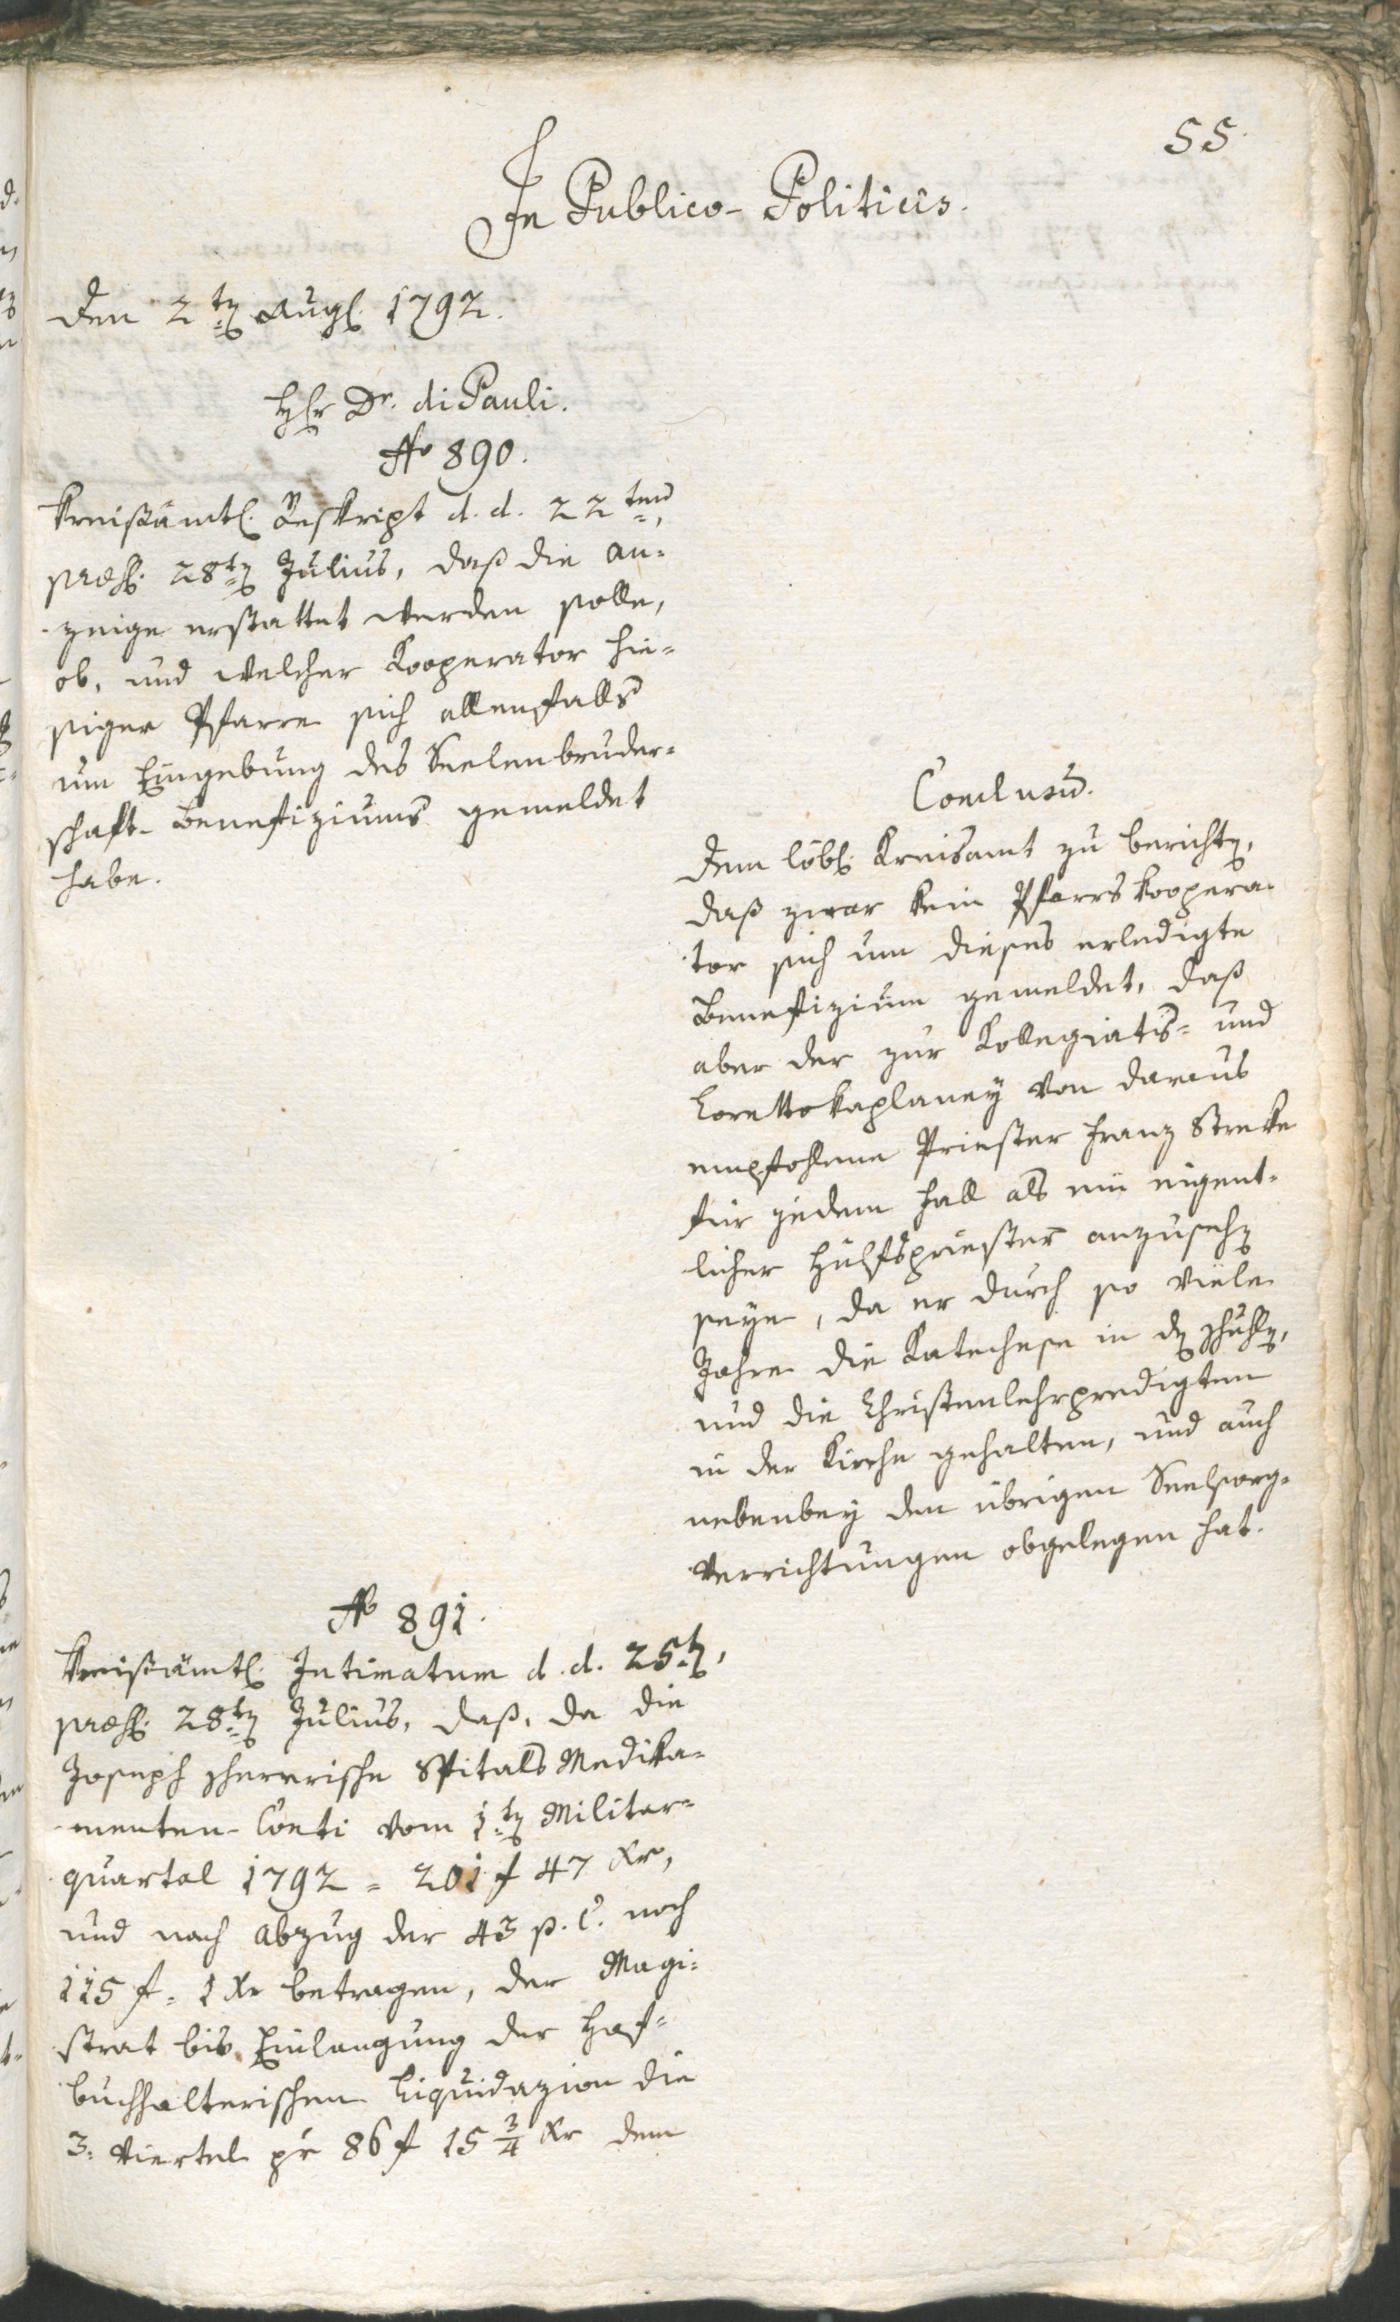 55.
In Publico-Politicis.
Den 2ten Augl. 1792.
Hr Dr. di Pauli.
No 890.
Kreißämtl. Reskript d. d. 22ten,
praes. 28ten Julius, daß die An-
zeige erstattet werden solle,
ob, und welcher Kooperator hie-
siger Pfarre sich allenfalls
um Eingebung des Seelenbruder-
schaft-Benefiziums gemeldet
habe.
Conclusum.
Dem löbl. Kreisamt zu berichten,
daß zwar kein Pfarrskoopera-
tor sich um dieses erledigte
Benefizium gemeldet, daß
aber der zur Kollegiats- und
Lorettokaplaney von daraus
empfohlene Priester Franz Streke
für jedem Fall als ein eigent-
licher Hülfspriester anzusehen
seye, da er durch so viele
Jahre die Katechese in den Schulen,
und die Christenlehrpredigten
in der Kirche gehalten, und auch
nebenbey den übrigen Seelsorg-
verrichtungen obgelegen hat.
No 891.
Kreißämtl. Intimatum d. d. 25ten,
praes. 28ten Julius, daß, da die
Joseph Scherrerische Spitals Medika-
menten-Conti vom 1ten Militar-
quartal 1792 = 201 f 47 Xr,
und nach Abzug der 43 p. C. noch
115 f = 1 Xr betragen, der Magi-
strat bis Einlangung der Hof-
buchhalterischen Liquidazion die
3. Viertel pr 86 f 15 3/4 Xr dem